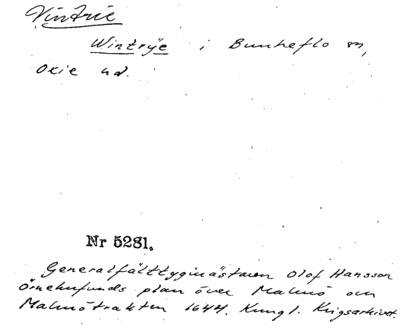 Vintrie
Wintrÿe i Bunkeflo sn,
Oxie hd.
Nr 5281.
Generalfälttygmästaren Olof Hansson
Örnehufvuds plan över Malmö och
Malmötrakten 1644. Kungl. Krigsarkivet.